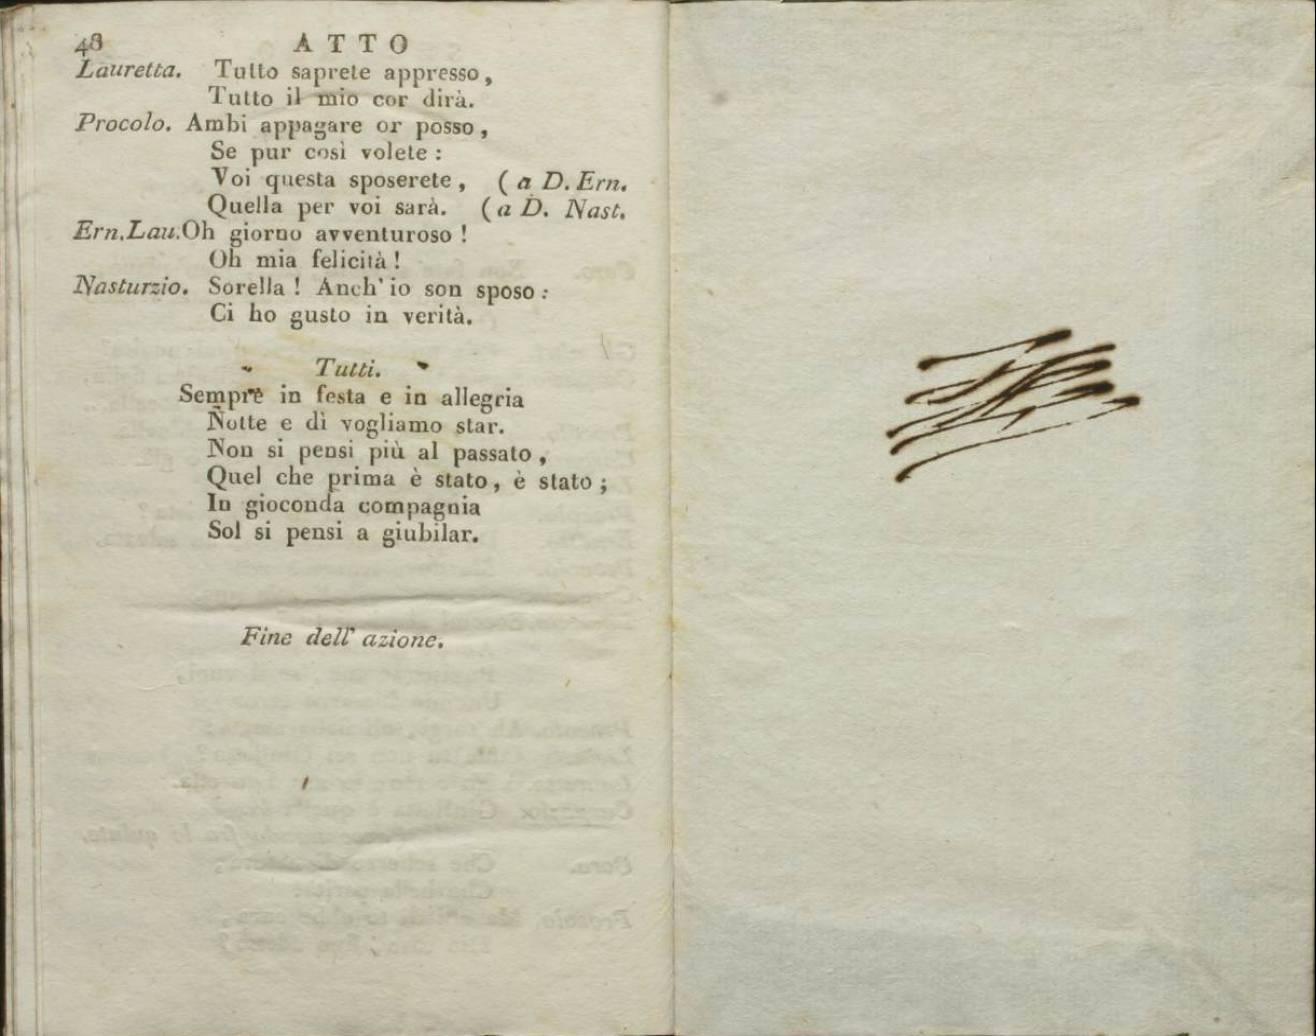 48 ATTO
Lauretta. Tutto saprete appresso,
Tutto il mio cor dirà.
Procolo. Ambi appagare or posso,
Se pur così volete:
Voi questa sposerete, (a D. Ern.
Quella per voi sarà. (a D. Nast.
Ern.Lau. Oh giorno avventuroso!
Oh mia felicità!
Nasturzio. Sorella! Anch'io son sposo:
Ci ho gusto in verità.
Tutti.
Sempre in festa e in allegria
Notte e dì vogliamo star.
Non si pensi più al passato,
Quel che prima è stato, è stato;
In gioconda compagnia
Sol si pensi a giubilar.
Fine dell'azione.